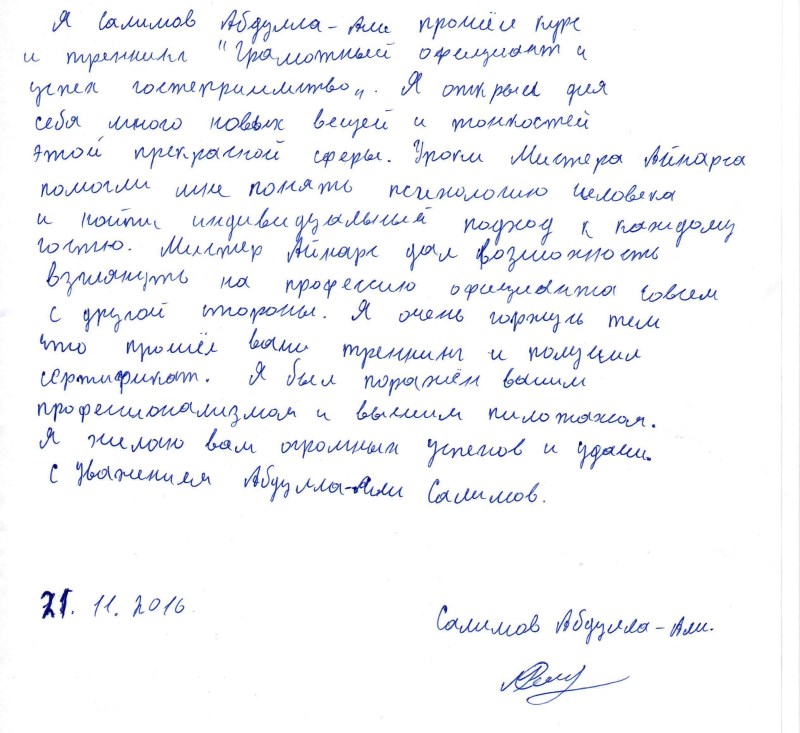 Я Салимов Абдулла-Али прошёл курс
и треннинг "Грамотный официант и
успех гостеприимство". Я открыл для
себя много новых вещей и тонкостей
этой прекрасной сферы. Уроки Мистера Айнарса
помогли мне понять психологию человека
и найти индивидуальный подход к каждому
гостю. Мистер Айнарс дал возможность
взглянуть на профессию официанта совсем
с другой стороны. Я очень горжусь тем
что прошёл ваш треннинг и получил
сертификат. Я был поражён вашим
профессионализмом и высшим пилотажом.
Я желаю вам огромных успехов и удачи.
С уважением Абдулла-Али Салимов.
21. 11. 2016
Салимов Абдулла-Али.